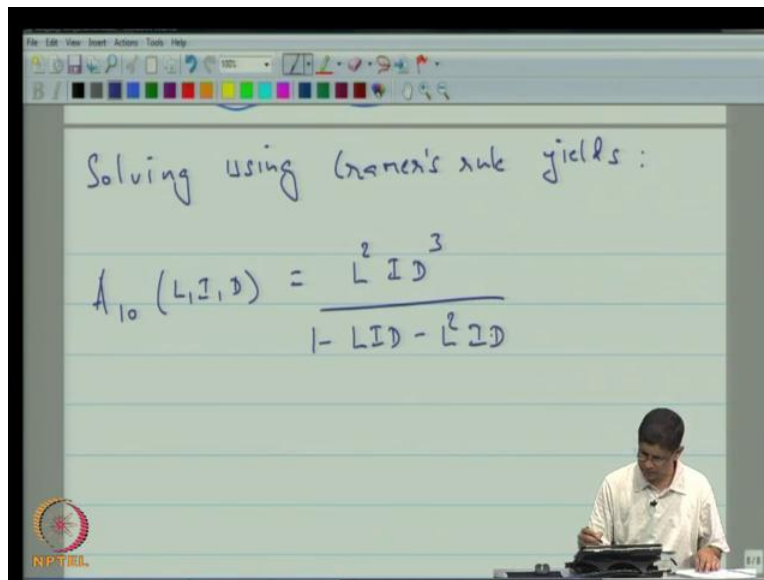 File Edit View Insert Actions Tools Help
100%
B I
Solving using Cramer's rule yields :
A₁₀ (L, I, D) = L² I D³
1 - LID - L² ID
NPTEL
8/8